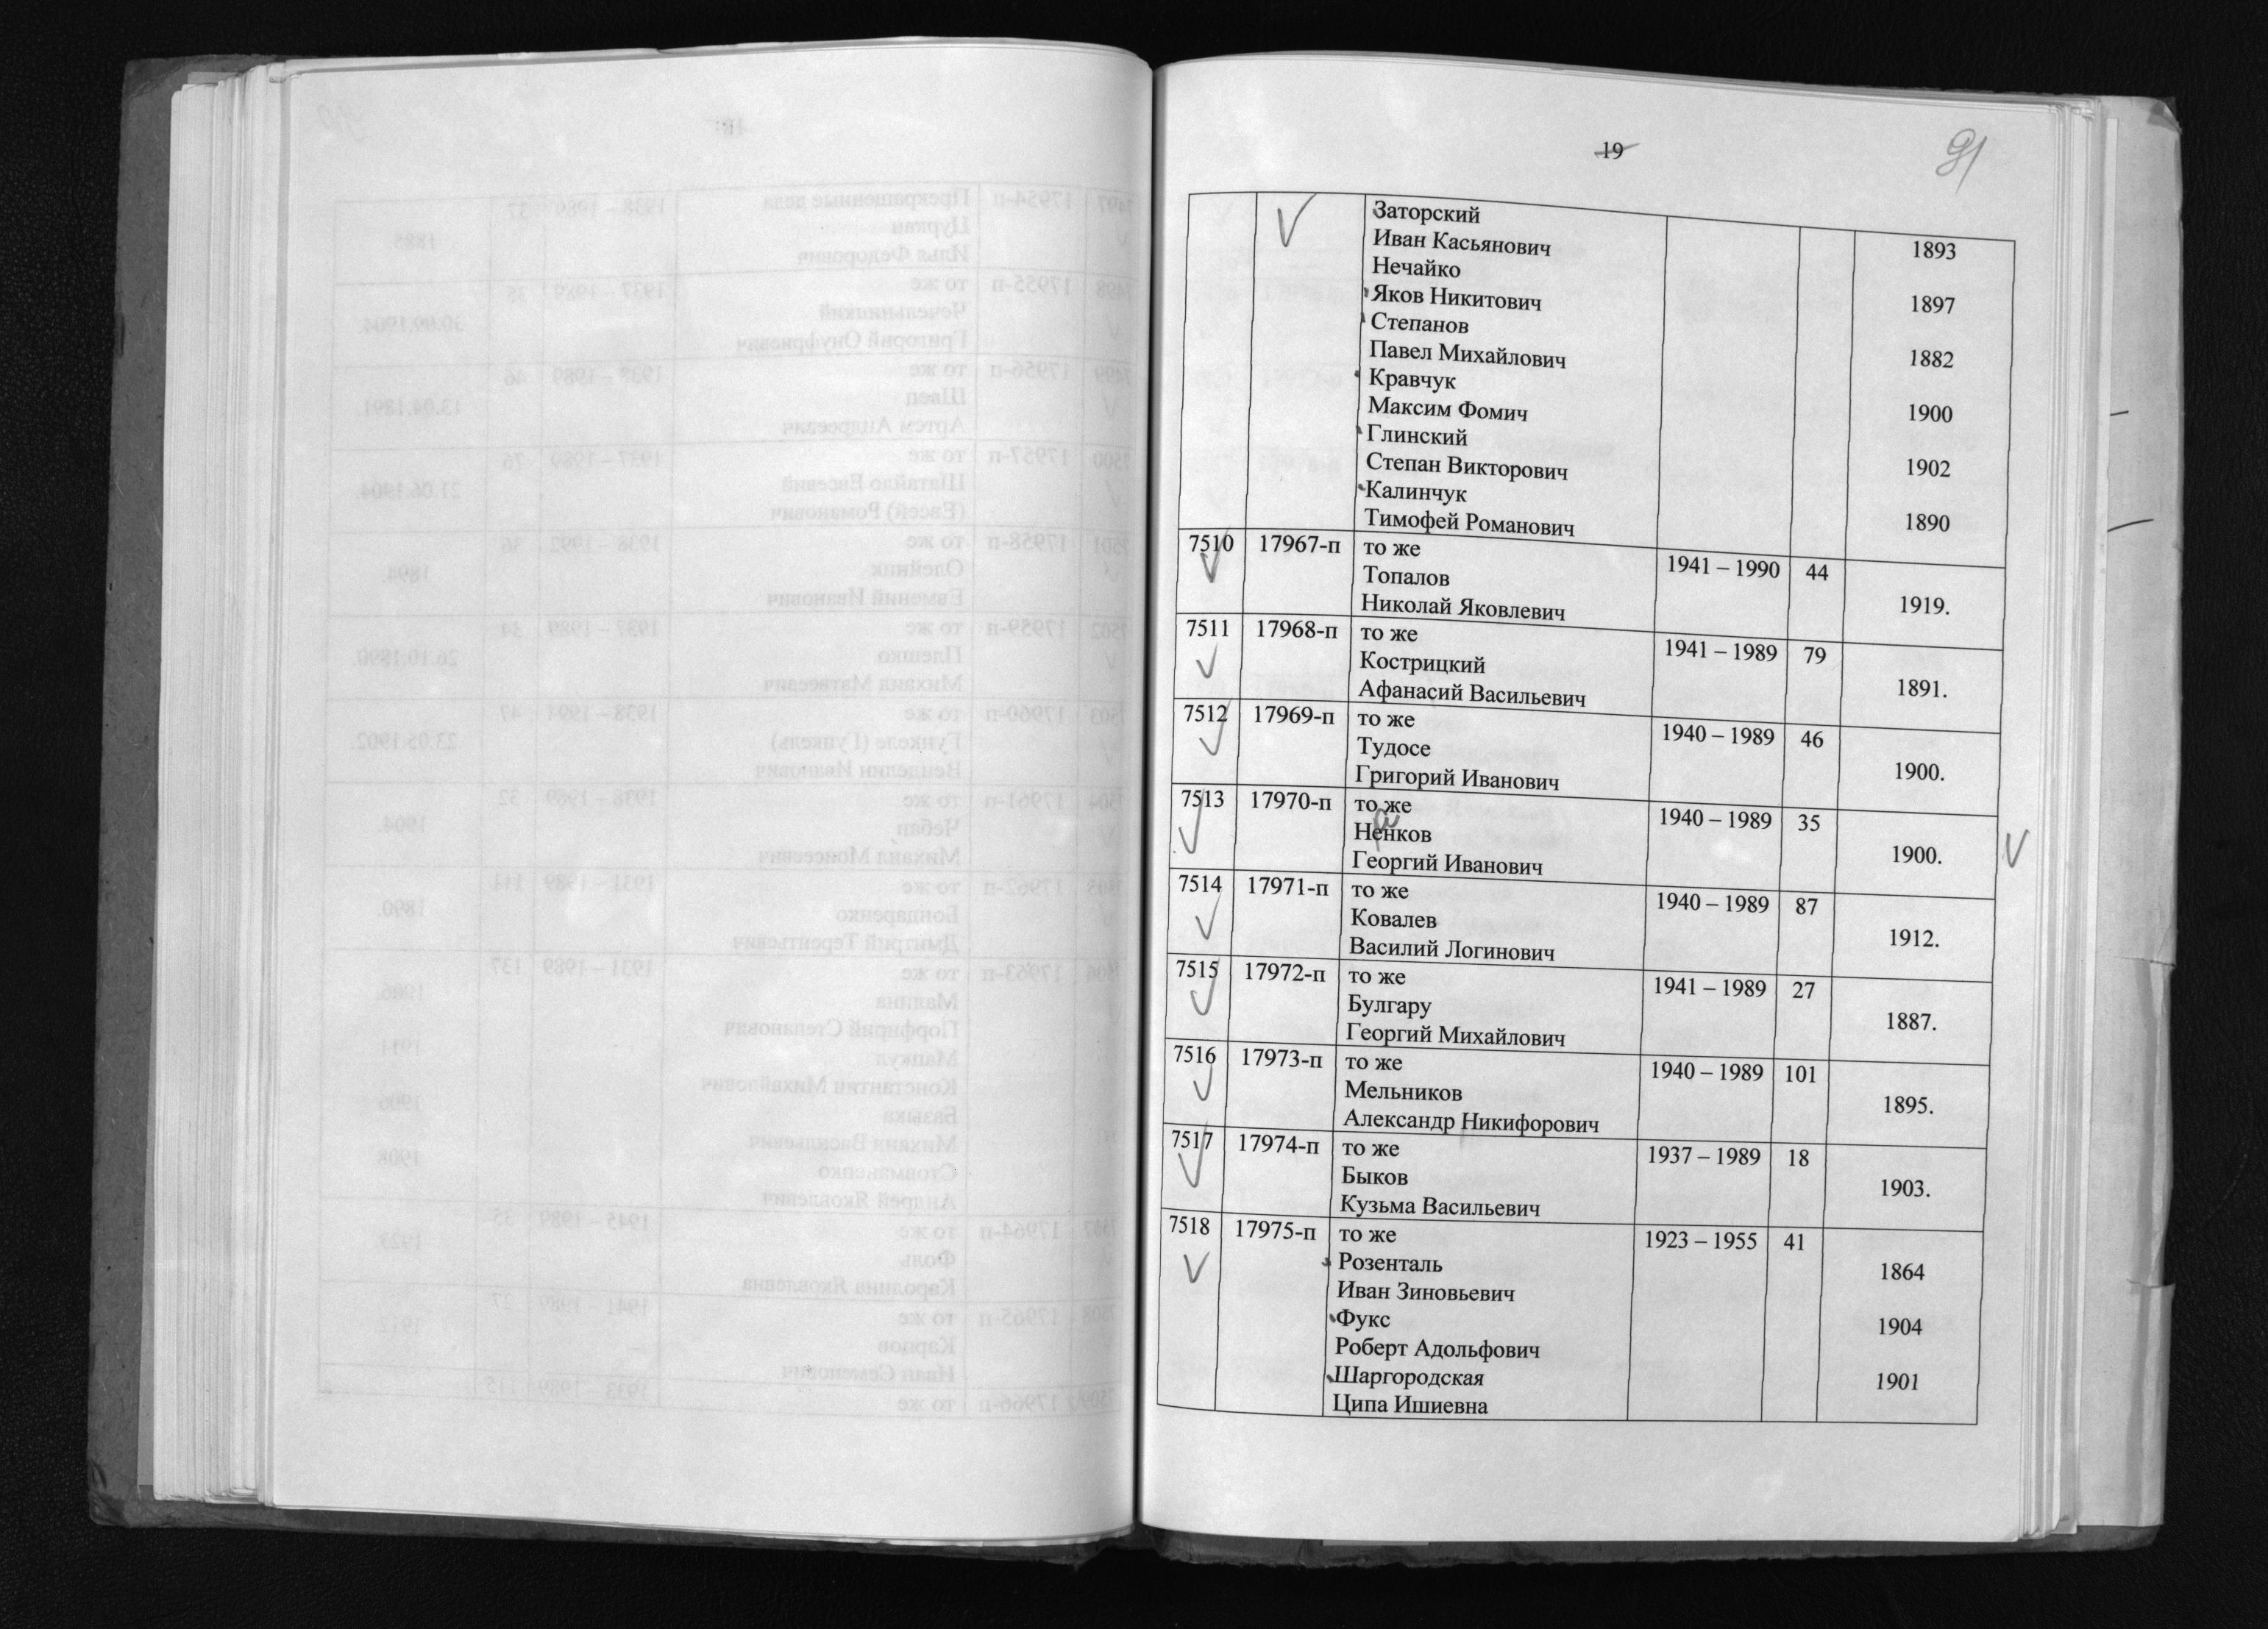 19
91
Заторский
Иван Касьянович 1893
Нечайко
Яков Никитович 1897
Степанов
Павел Михайлович 1882
Кравчук
Максим Фомич 1900
Глинский
Степан Викторович 1902
Калинчук
Тимофей Романович 1890
7510 17967-п то же 1941 – 1990 44
Топалов
Николай Яковлевич 1919.
7511 17968-п то же 1941 – 1989 79
Кострицкий
Афанасий Васильевич 1891.
7512 17969-п то же 1940 – 1989 46
Тудосе
Григорий Иванович 1900.
7513 17970-п то же 1940 – 1989 35
а
Ненков
Георгий Иванович 1900.
7514 17971-п то же 1940 – 1989 87
Ковалев
Василий Логинович 1912.
7515 17972-п то же 1941 – 1989 27
Булгару
Георгий Михайлович 1887.
7516 17973-п то же 1940 – 1989 101
Мельников
Александр Никифорович 1895.
7517 17974-п то же 1937 – 1989 18
Быков
Кузьма Васильевич 1903.
7518 17975-п то же 1923 – 1955 41
Розенталь 1864
Иван Зиновьевич
Фукс 1904
Роберт Адольфович
Шаргородская 1901
Ципа Ишиевна